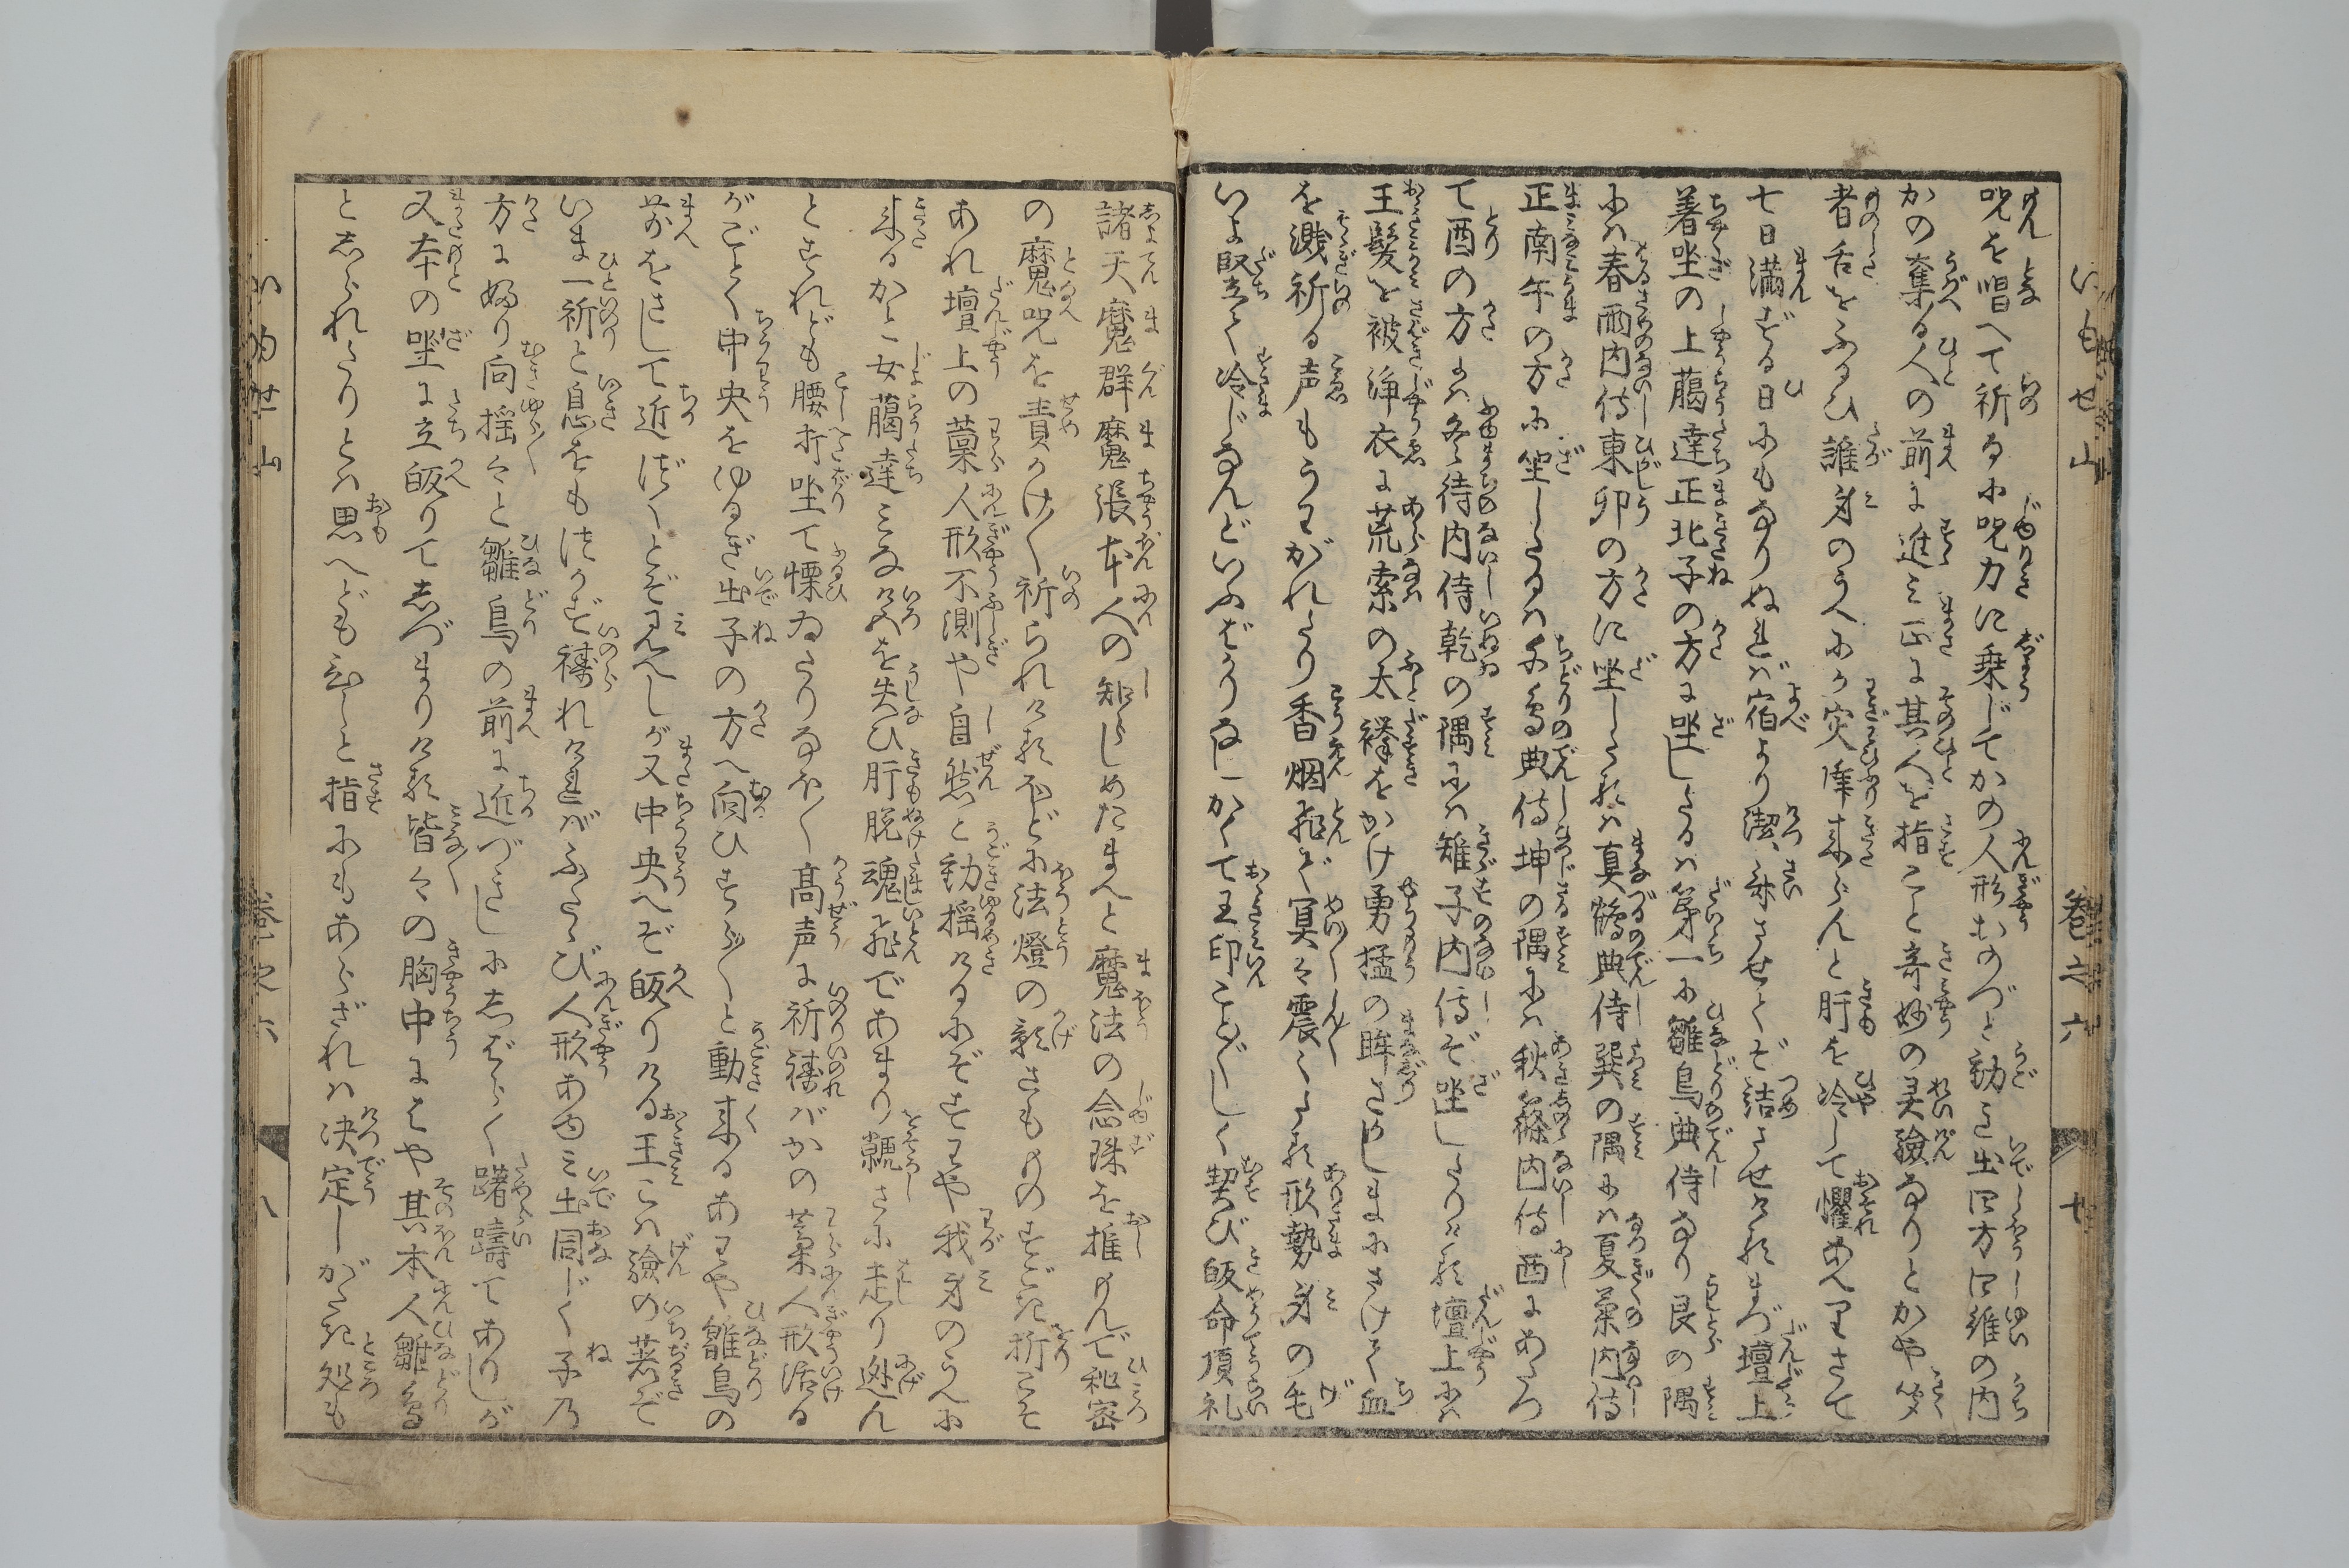 いもせ山 巻之六 七
呪を唱へて祈るに呪力に乗じてかの人形おのづと動き出四方四維の内
かの奪る人の前に進み正に其人を指こと奇妙の灵驗なりとかや笑
者舌をふるひ誰身のうへにか灾𧏚来らんと肝を冷して懼あへりさて
七日満ずる日にもなりぬれば宿より潔斎させとぞ結させける先づ壇上
着坐の上臈達正北子の方に坐したるは第一に雛鳥典侍なり艮の隅
には春雨内侍東卯の方に坐したるは真鶴典侍巽の隅には夏菊内侍
正南午の方に坐したるは千鳥典侍坤の隅には秋篠内侍西にあたつ
て酉の方には冬待内侍乾の隅には雉子内侍ぞ坐したりける壇上には
王髪を被浄衣に荒索の太襷をかけ勇猛の眸さかしまにさけて血
を濺祈る声もうらがれたり香烟飛で冥々震々たる形勢身の毛
いよ竪て冷じなんどいふばかりなしかくて王印こと〴〵しく契び皈命頂礼
諸天魔群魔張本人の知しめたまへと魔法の念珠を推もんで秘密
の魔呪を責かけ〳〵祈られける程に法燈の影さものすごき折こそ
あれ壇上の藁人形不測や自然と動揺けるにぞすはや我身のうへに
来るかと女臈達みな色を失ひ肝脱魂飛であまり𩥇さに走り迯ん
とすれども腰折坐て慄ゐたりなほ〳〵高声に祈禱ばかの藁人形活る
がごとく中央をゆるぎ出子の方へ向ひすら〳〵と動来るあはや雛鳥の
前をさして近づくとぞ見へしが又中央へぞ皈りける王こは驗の著ぞ
いま一祈と息をもつがず禱れければふたゝび人形あゆみ出同じく子乃
方にゆり向揺々と雛鳥の前に近づきしにしばらく躊躇てありしが
又本の坐に立皈りてしづまりける皆々の胸中にはや其本人雛鳥
としられたりとは思へどもしかと指にもあらざれば決定しがたき処も
いもせ山 巻之六 八